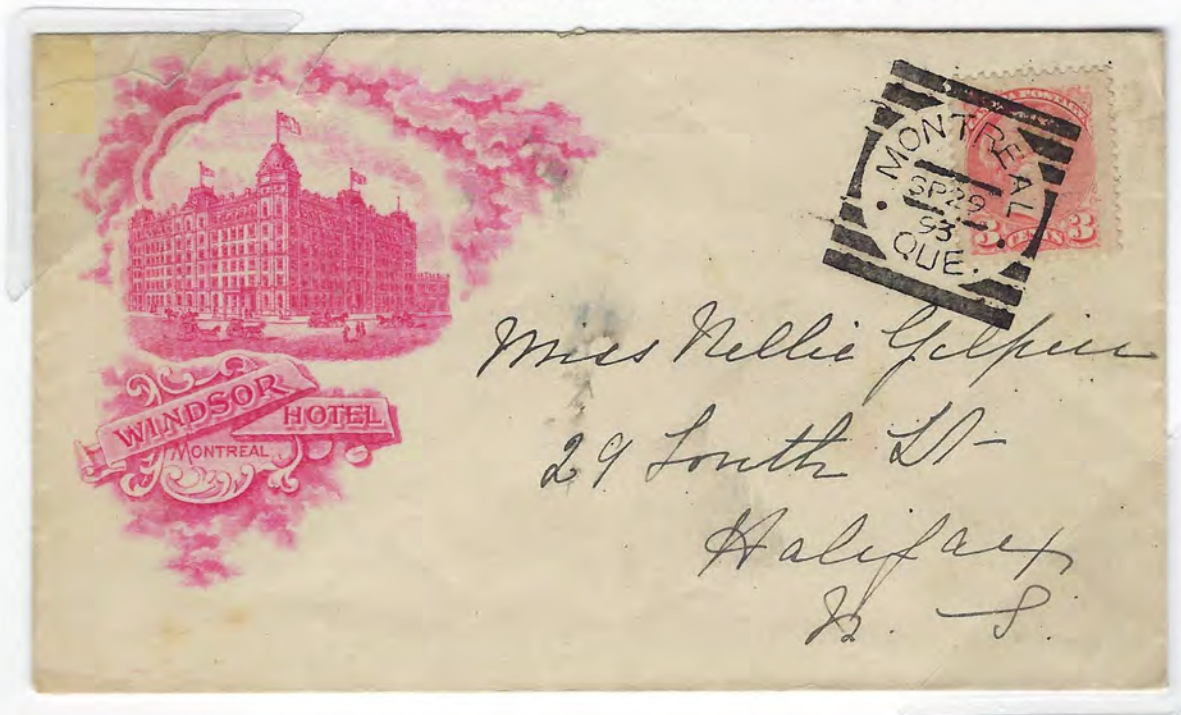 WINDSOR
HOTEL
MONTREAL
MONTREAL
SP 29
93
QUE.
3 CENTS 3
Miss Nellie Gilpin
29 South St
Halifax
N. S.